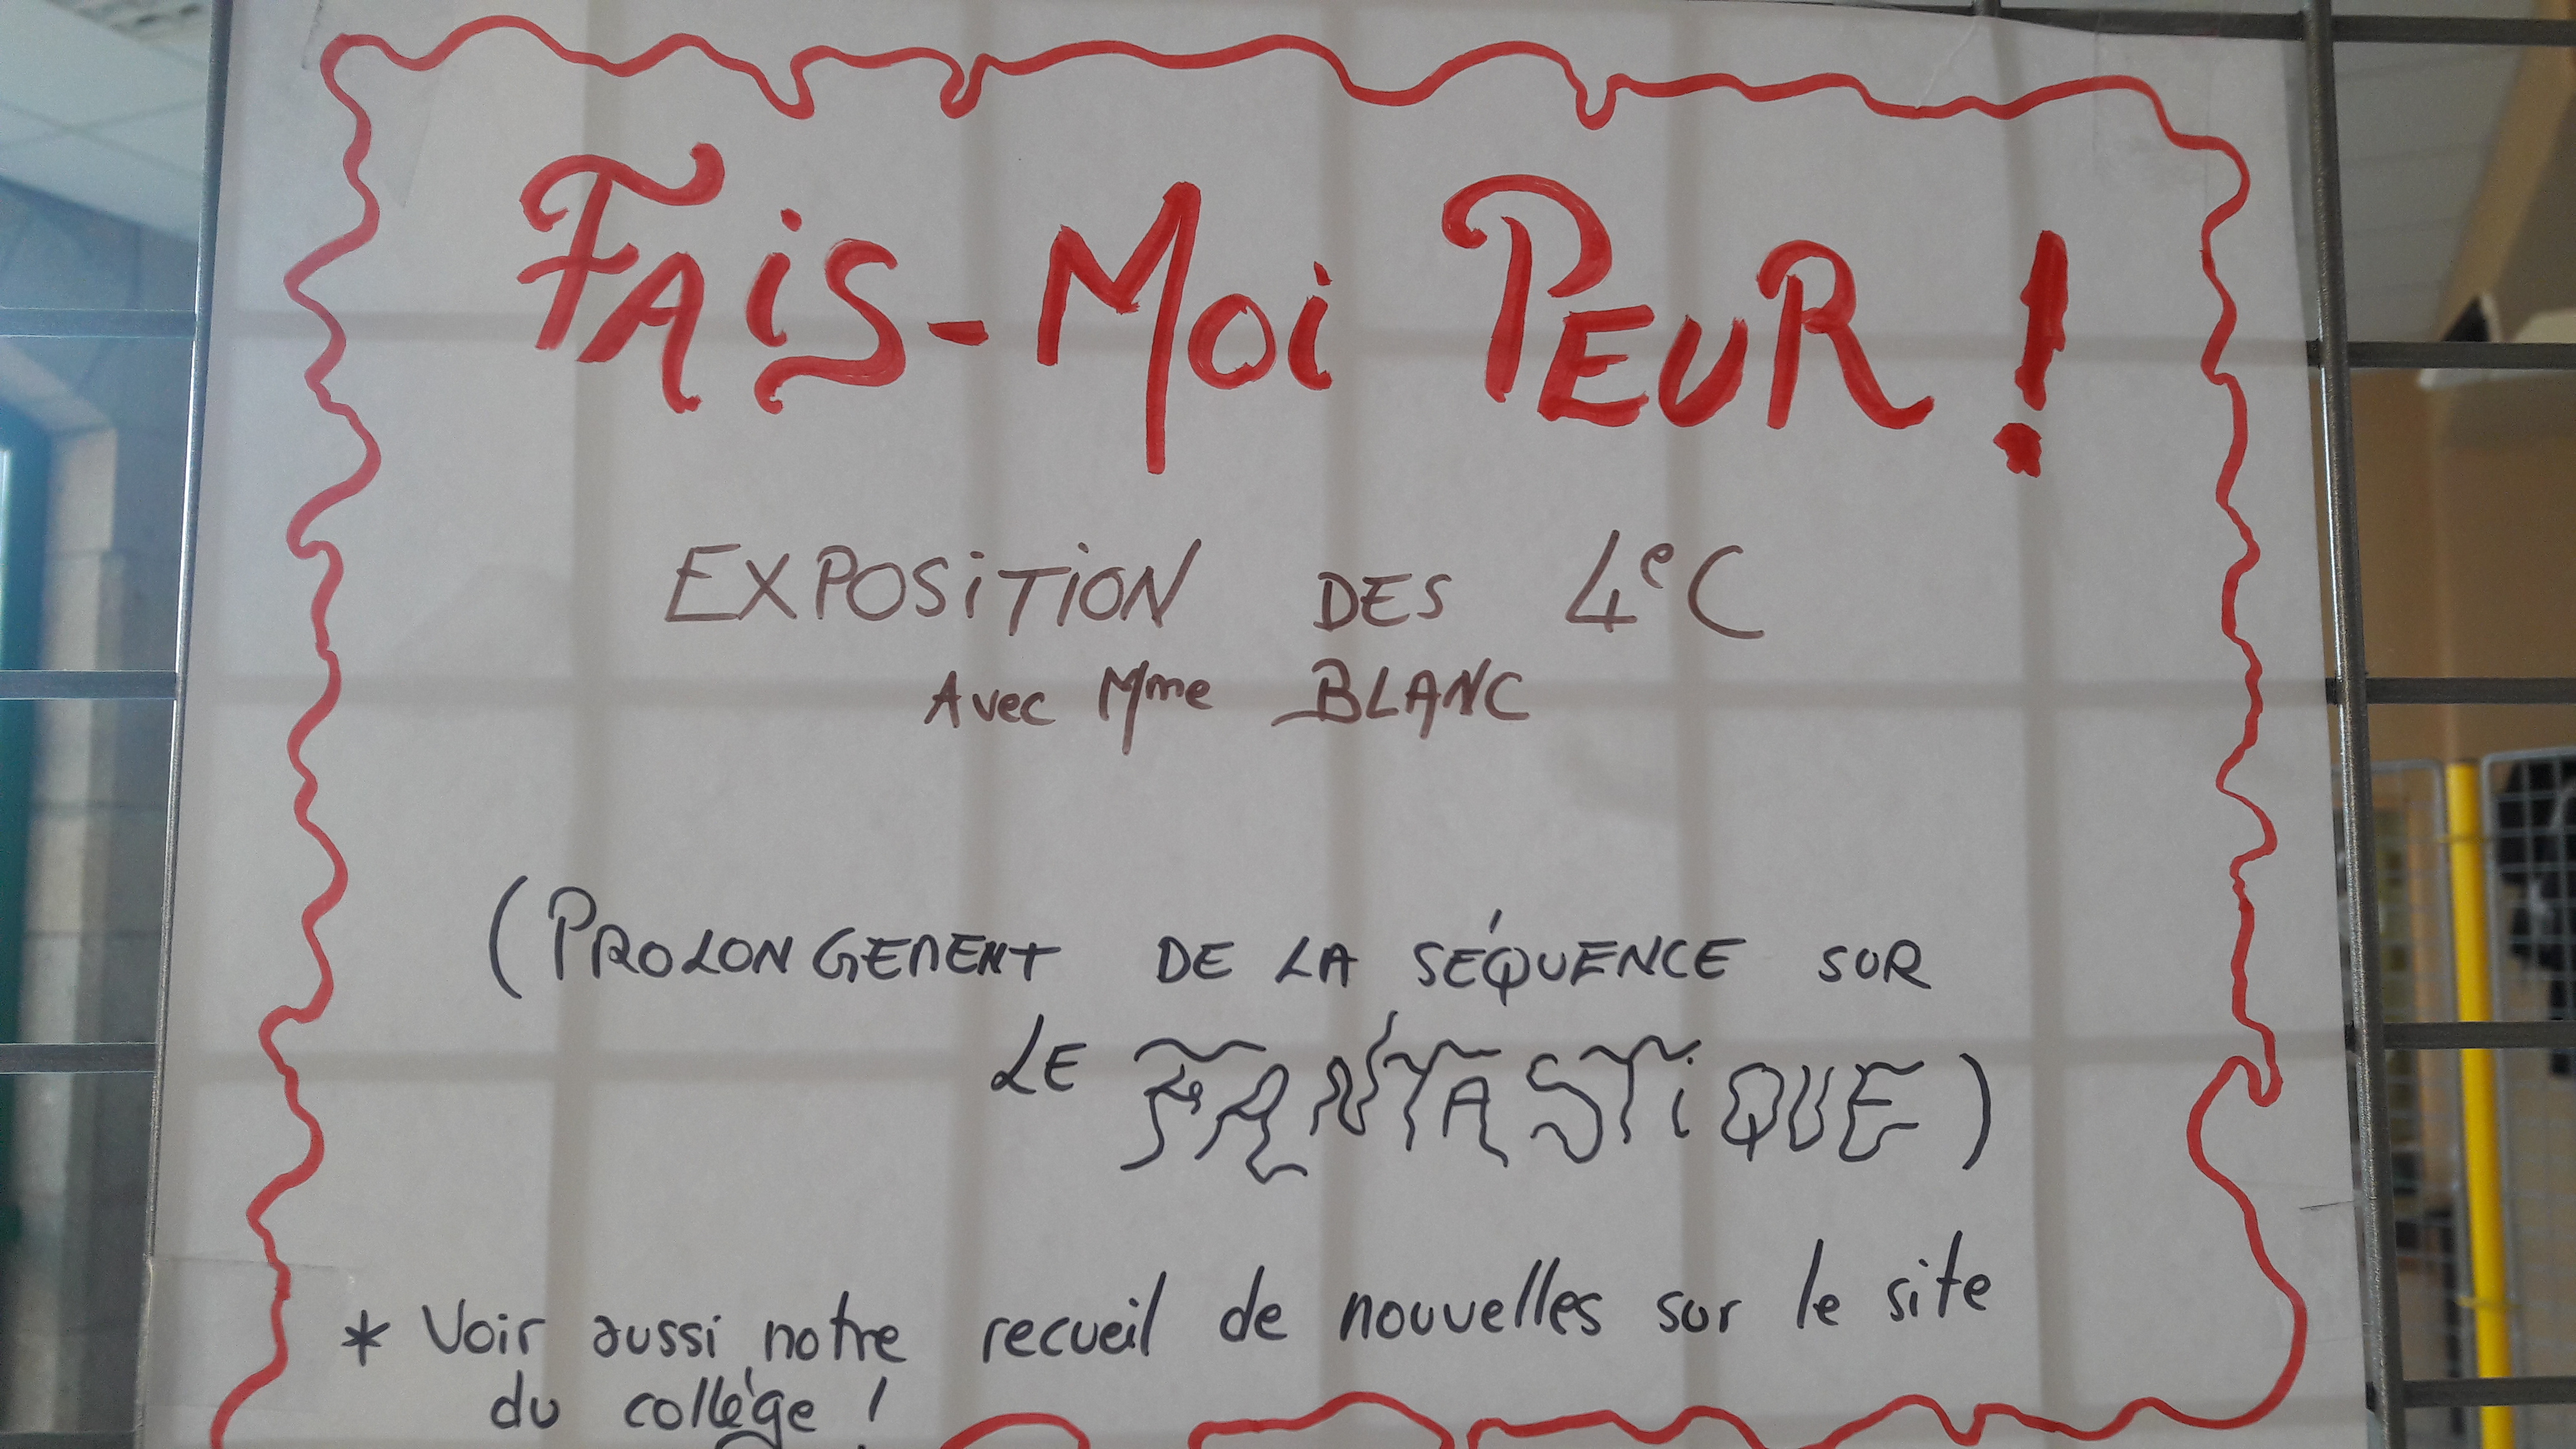 FAiS-Moi PEUR !
EXPOSiTiON DES 4eC
Avec Mme BLANC
(PROLONGEMENT DE LA SÉQUENCE SUR
LE FANTASTiQUE)
* Voir aussi notre recueil de nouvelles sur le site
du collège !